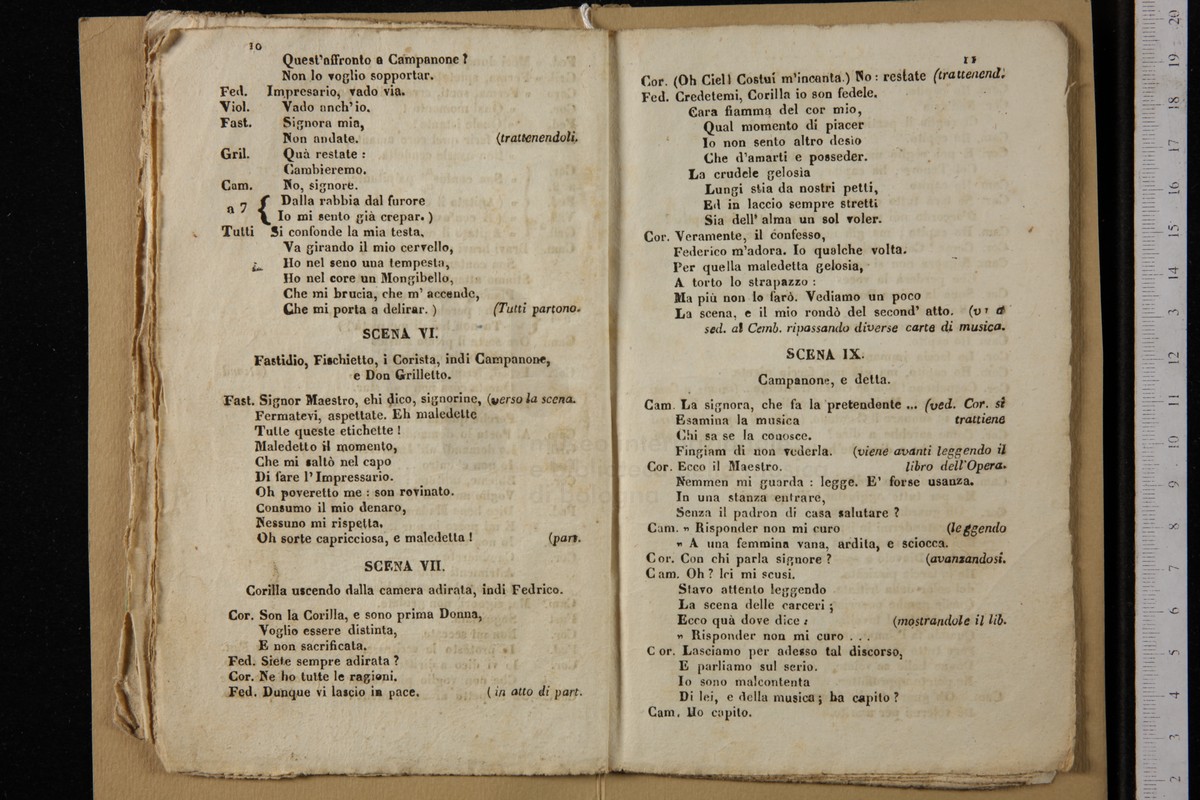 10
Quest'affronto a Campanone?
Non lo voglio sopportar.
Fed. Impresario, vado via.
Viol. Vado anch'io.
Fast. Signora mia,
Non andate. (trattenendoli.
Gril. Quà restate :
Cambieremo.
Cam. No, signore.
a 7 { Dalla rabbia dal furore
Io mi sento già crepar. )
Tutti Si confonde la mia testa,
Va girando il mio cervello,
Ho nel seno una tempesta,
Ho nel core un Mongibello,
Che mi brucia, che m' accende,
Che mi porta a delirar. ) (Tutti partono.
SCENA VI.
Fastidio, Fischietto, i Corista, indi Campanone,
e Don Grilletto.
Fast. Signor Maestro, ehi dico, signorine, (verso la scena.
Fermatevi, aspettate. Eh maledette
Tutte queste etichette !
Maledetto il momento,
Che mi saltò nel capo
Di fare l'Impressario.
Oh poveretto me : son rovinato.
Consumo il mio denaro,
Nessuno mi rispetta.
Oh sorte capricciosa, e maledetta ! (part.
SCENA VII.
Corilla uscendo dalla camera adirata, indi Fedrico.
Cor. Son la Corilla, e sono prima Donna,
Voglio essere distinta,
E non sacrificata.
Fed. Siete sempre adirata ?
Cor. Ne ho tutte le ragioni.
Fed. Dunque vi lascio in pace. ( in atto di part.
11
Cor. (Oh Ciel! Costui m'incanta.) No : restate (trattenend.
Fed. Credetemi, Corilla io son fedele.
Cara fiamma del cor mio,
Qual momento di piacer
Io non sento altro desio
Che d'amarti e posseder.
La crudele gelosia
Lungi stia da nostri petti,
Ed in laccio sempre stretti
Sia dell' alma un sol voler.
Cor. Veramente, il confesso,
Federico m'adora. Io qualche volta.
Per quella maledetta gelosia,
A torto lo strapazzo :
Ma più non lo farò. Vediamo un poco
La scena, e il mio rondò del second' atto. (v' a
sed. al Cemb. ripassando diverse carte di musica.
SCENA IX.
Campanone, e detta.
Cam. La signora, che fa la pretendente ... (ved. Cor. si
Esamina la musica trattiene
Chi sa se la conosce.
Fingiam di non vederla. (viene avanti leggendo il
Cor. Ecco il Maestro. libro dell'Opera.
Nemmen mi guarda : legge. E' forse usanza.
In una stanza entrare,
Senza il padron di casa salutare ?
Cam. » Risponder non mi curo (leggendo
» A una femmina vana, ardita, e sciocca.
Cor. Con chi parla signore ? (avanzandosi.
Cam. Oh ? lei mi scusi.
Stavo attento leggendo
La scena delle carceri ;
Ecco quà dove dice : (mostrandole il lib.
» Risponder non mi curo . . .
Cor. Lasciamo per adesso tal discorso,
E parliamo sul serio.
Io sono malcontenta
Di lei, e della musica ; ha capito ?
Cam. Ho capito.
2 3 4 5 6 7 8 9 10 11 12 13 14 15 16 17 18 19 20